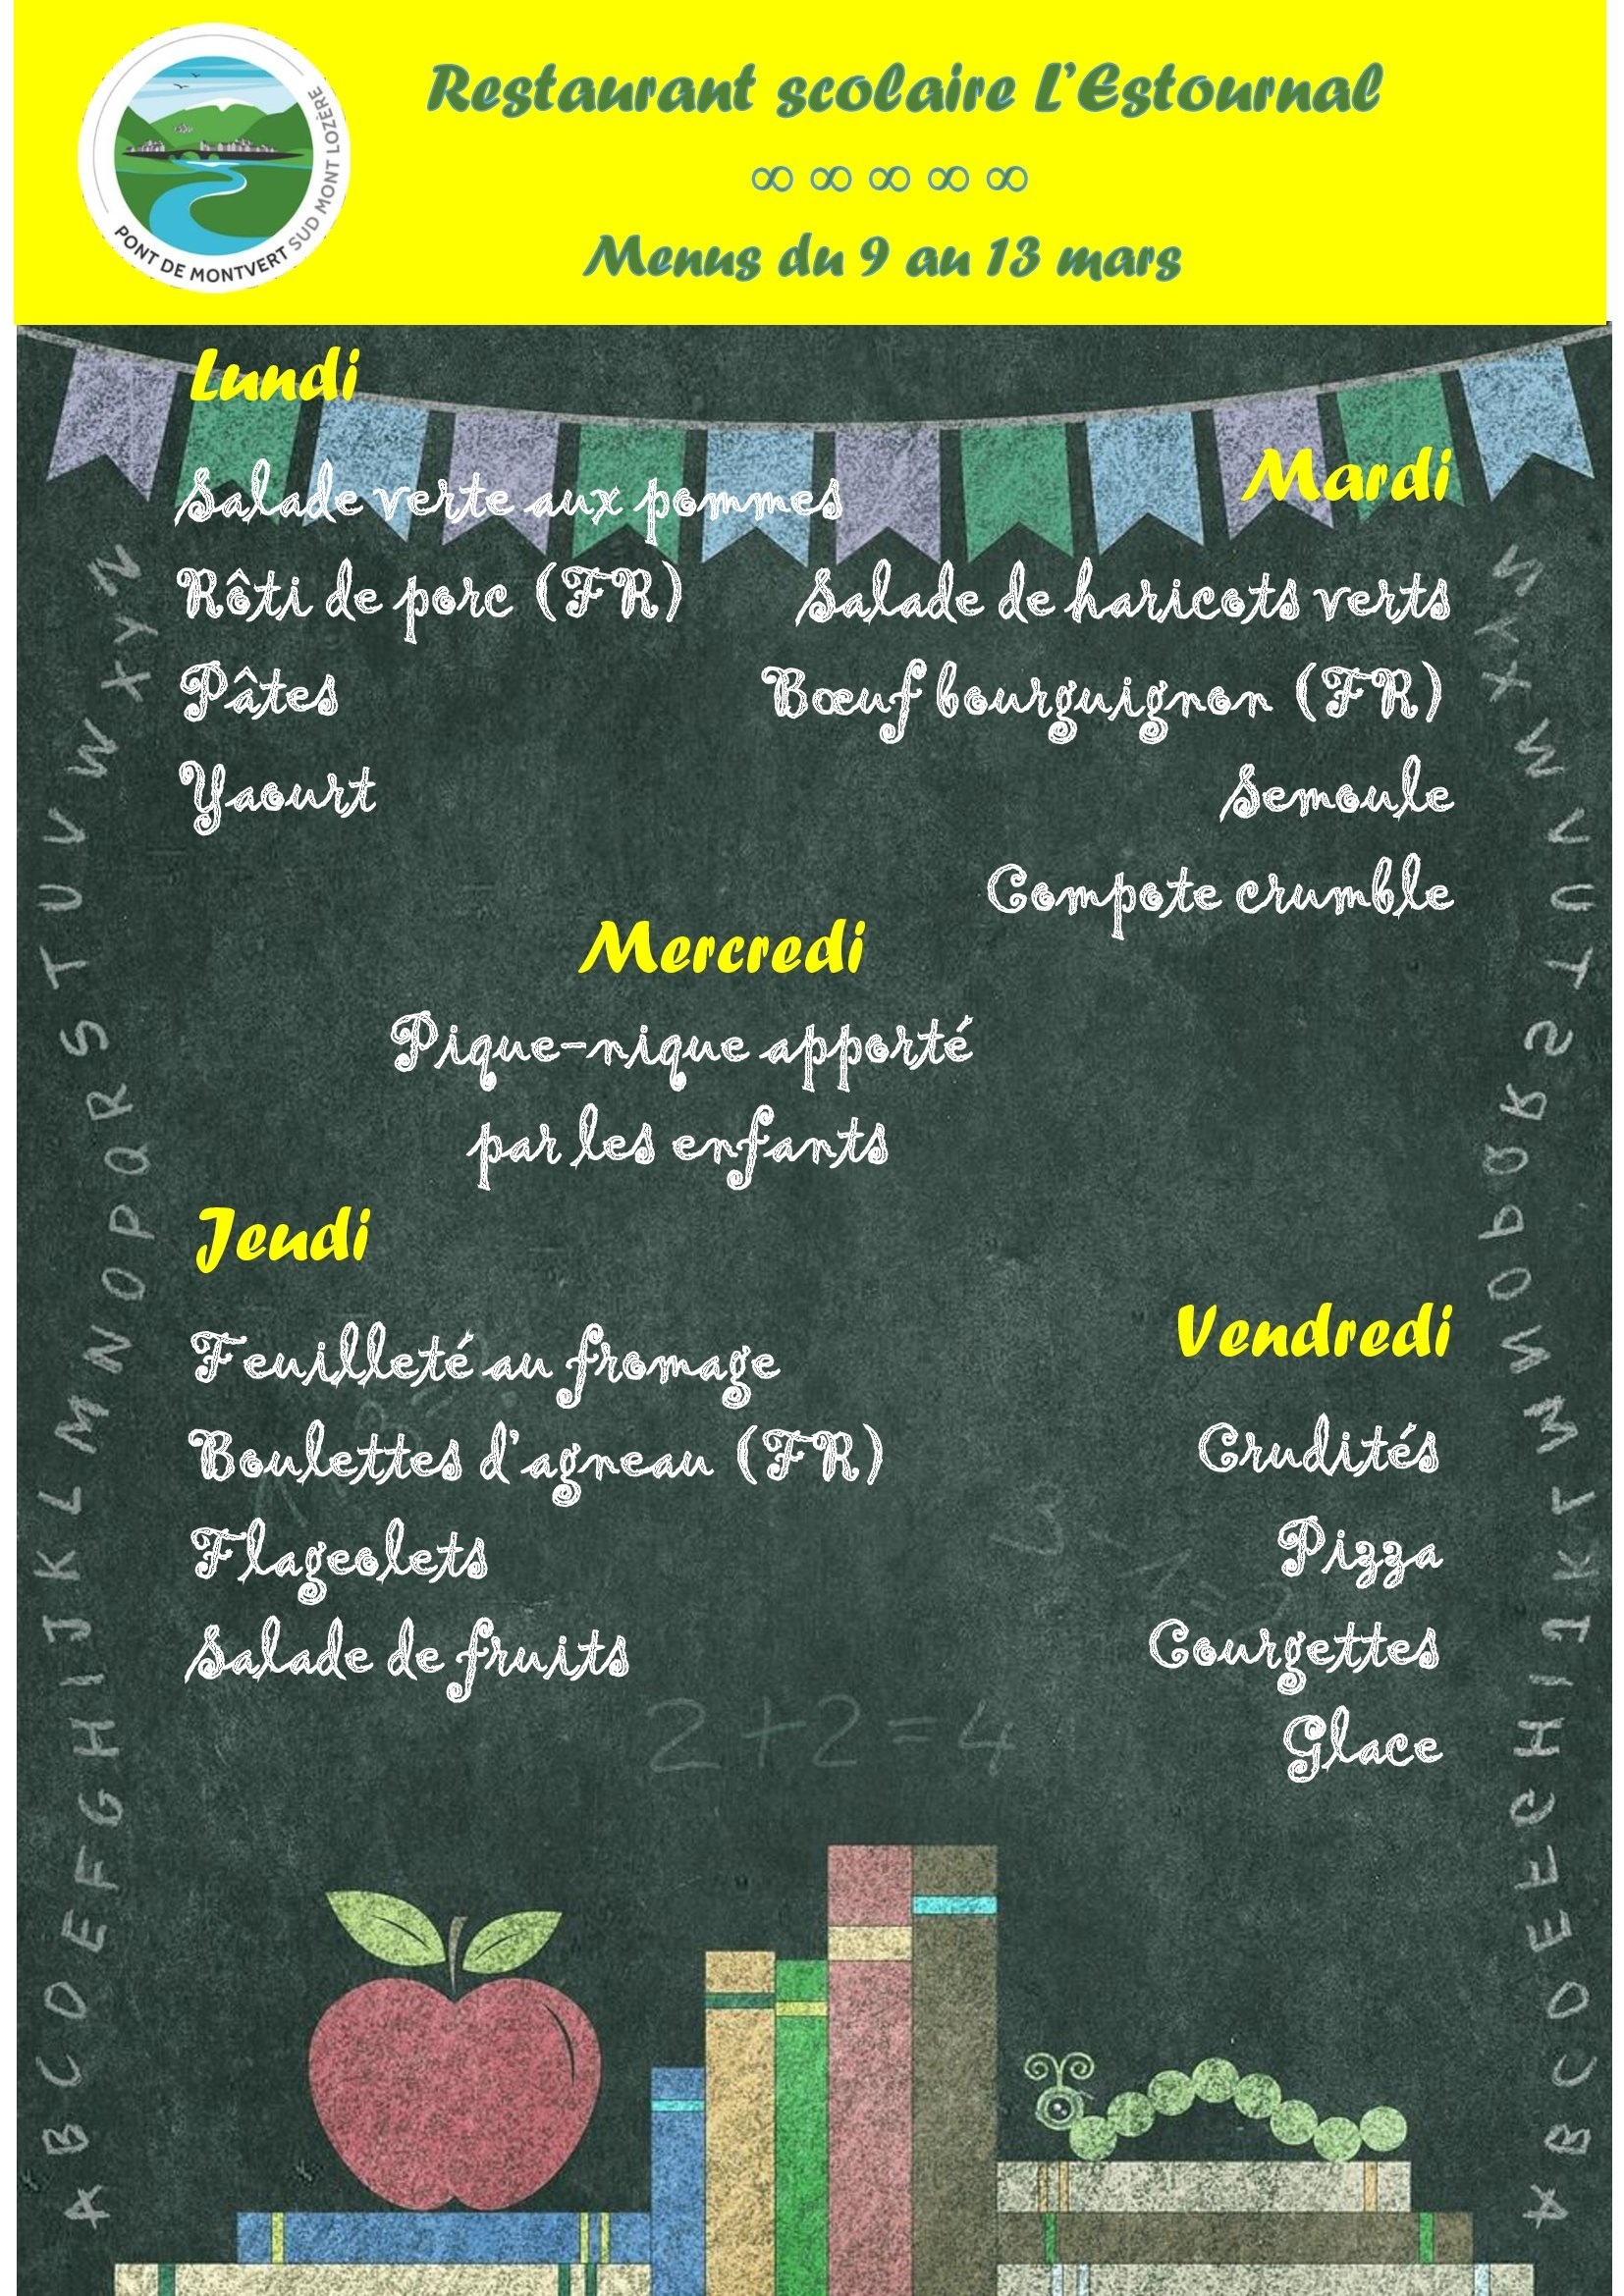 Restaurant scolaire L'Estournal
∞ ∞ ∞ ∞ ∞
Menus du 9 au 13 mars
PONT DE MONTVERT SUD MONT LOZÈRE
Lundi
Salade verte aux pommes
Rôti de porc (FR)
Pâtes
Yaourt
Mardi
Salade de haricots verts
Bœuf bourguignon (FR)
Semoule
Compote crumble
Mercredi
Pique-nique apporté
par les enfants
Jeudi
Feuilleté au fromage
Boulettes d'agneau (FR)
Flageolets
Salade de fruits
Vendredi
Crudités
Pizza
Courgettes
Glace
2+2=4